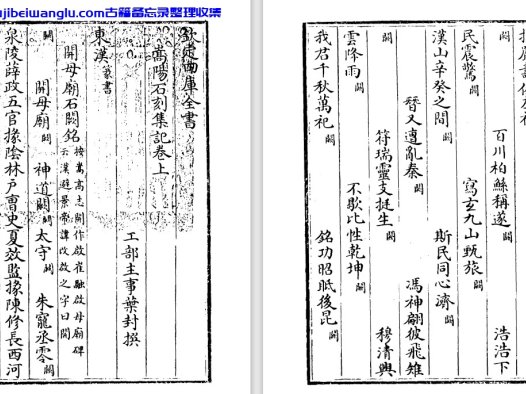 ujibeiwanglu.com古籍备忘录整理收集
欽定四庫全書
嵩陽石刻集記卷上
工部主事葉封撰
東漢 篆書
開母廟石闕銘 按嵩高志開作啟崔融啟母廟碑
云漢避景帝諱改啟之字曰開
闕 開母廟 闕 神道闕 闕 太守 闕 朱寵丞零 闕
泉陵薛政五官掾陰林戶曹史夏效監掾陳修長西河
闕 百川柏鯀稱遂 闕 浩浩下
民震驚 闕 寫玄九山甄旅 闕
漢山辛癸之間 闕 斯民同心濟 闕
替又遭亂秦 闕 馮神翩彼飛雉
闕 符瑞靈支挺生 闕 穆清興
雲降雨 闕 不歇比性乾坤 闕
我君千秋萬祀 闕 銘功昭眂後昆 闕